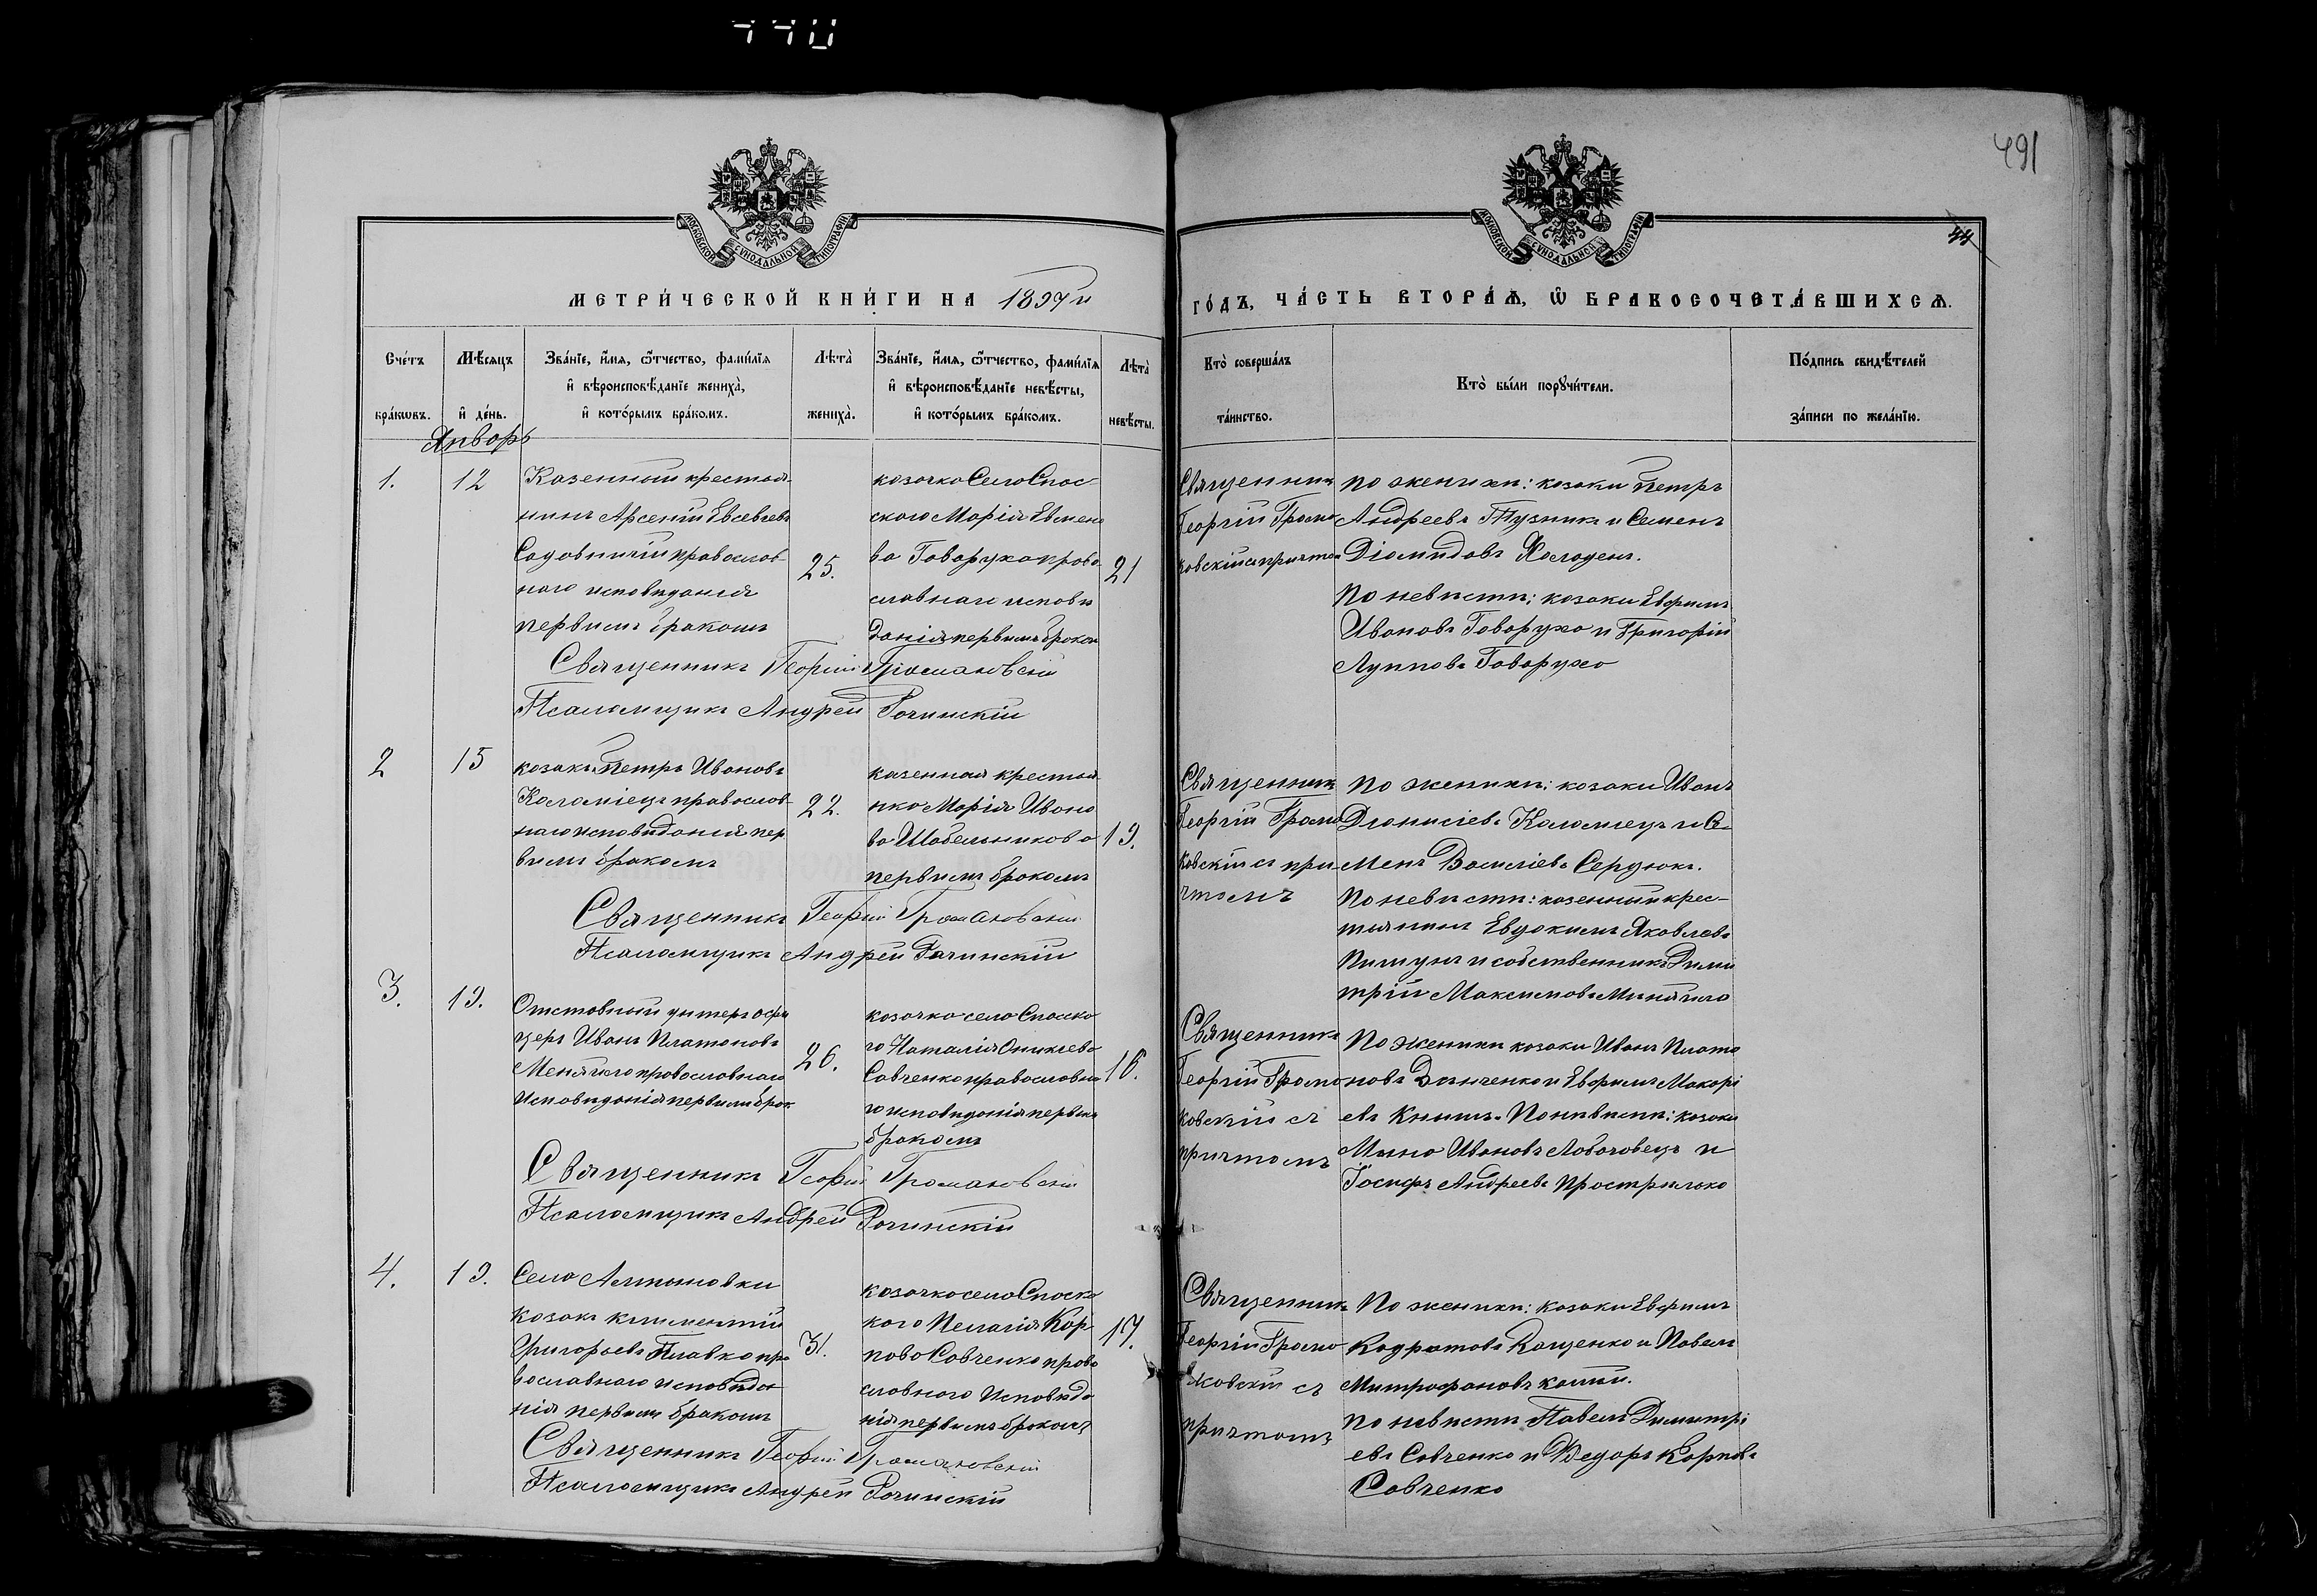 440
491
44
МОСКОВСКОЙ СѴНОДАЛЬНОЙ ТИПОГРАФІИ
МОСКОВСКОЙ СѴНОДАЛЬНОЙ ТИПОГРАФІИ
МЕТРИ́ЧЕСКОЙ КНИ́ГИ НА 1897й
ГО́ДЪ, ЧА́СТЬ ВТОРА́Ѧ, Ѡ҆ БРАКОСОЧЕТА́ВШИХСѦ.
Сче́тъ бра́кѡвъ.
Мѣ́сяцъ и҆ де́нь.
Зва́нїе, и҆́мя, ѻ҆́тчество, фами́лїя
и҆ вѣроисповѣ́данїе жениха̀,
и҆ кото́рымъ бра́комъ.
Лѣ́та̀ жениха̀.
Зва́нїе, и҆́мя, ѻ҆́тчество, фами́лїя
и҆ вѣроисповѣ́данїе невѣ́сты,
и҆ кото́рымъ бра́комъ.
Лѣ́та̀ невѣ́сты.
Кто̀ соверша́лъ
та́инство.
Кто̀ бы́ли порꙋчи́тели.
По́дпись свидѣ́телей
за́писи по жела́нїю.
Январь
1.
12
Казенный крестья-
нинъ Арсеній Евсевіевъ
Садовничій православ-
наго исповиданія
первимъ бракомъ
25.
козачка Села Спас
ского Марія Евмено
ва Говоруха право
славнаго испови
данія первимъ браком
21
Священникъ
Георгій Грома
ковскій с причтом
по женихи: козаки Петръ
Андреевъ Тузникъ и Семенъ
Діомидовъ Холоденъ.
По невисти: козаки Ефимъ
Ивановъ Говорухо и Григорій
Луповъ Говорухо
Священникъ Георгій Громаковскій
Псаломщикъ Андрей Рачинскій
2
15
козакъ Петръ Ивановъ
Коломіецъ православ-
наго исповиданія пер
вимъ бракомъ
22.
казенная крестья
нка Марія Ивано
ва Шабельникова
первимъ бракомъ
19.
Священникъ
Георгій Грома
ковскій съ при-
чтомъ
по женихи: козаки Иванъ
Діонисіевъ Коломіецъ и Се-
менъ Василіевъ Сердюкъ.
По невисти: казенный крес-
тянинъ Евдокимъ Яковлевъ
Пилипунъ и собственникъ Дими
трій Максимовъ Миняйло
Священникъ Георгій Громаковскій
Псаломщикъ Андрей Рачинскій
3.
19.
Отставный унтеръ офи
церъ Иванъ Платоновъ
Меняйло православнаго
исповиданія первимъ брак.
26.
козачка села Спаско
го Наталія Оникіева
Савченко православна
го исповиданія первим
бракомъ
16.
Священникъ
Георгій Грома
ковскій съ
причтомъ
По женихи козаки Иванъ Плато
новъ Данченко и Ефимъ Макарі
евъ Книшъ. По нивисти: козаки
Мина Ивановъ Лобачовецъ и
Іосифъ Андреевъ Прострилько
Священникъ Георгій Громаковскій
Псаломщикъ Андрей Рачинскій
4.
19.
Села Алтыновки
козакъ Климентій
Григорьевъ Плавко пра
вославнаго исповида
нія первимъ бракомъ
31.
козачка села Спаско
каго Пелагія Кар
пова Савченко право
славного исповида
нія первимъ бракомъ
17.
Священникъ
Георгій Грома
ковскій съ
причтомъ
По женихи: козаки Ефимъ
Кодратовъ Ващенко и Павелъ
Митрофановъ
По невисти Павелъ Димитрі
евъ Савченко и Федоръ Карповъ
Савченко
Священникъ Георгій Громаковскій
Псаломщикъ Андрей Рачинскій